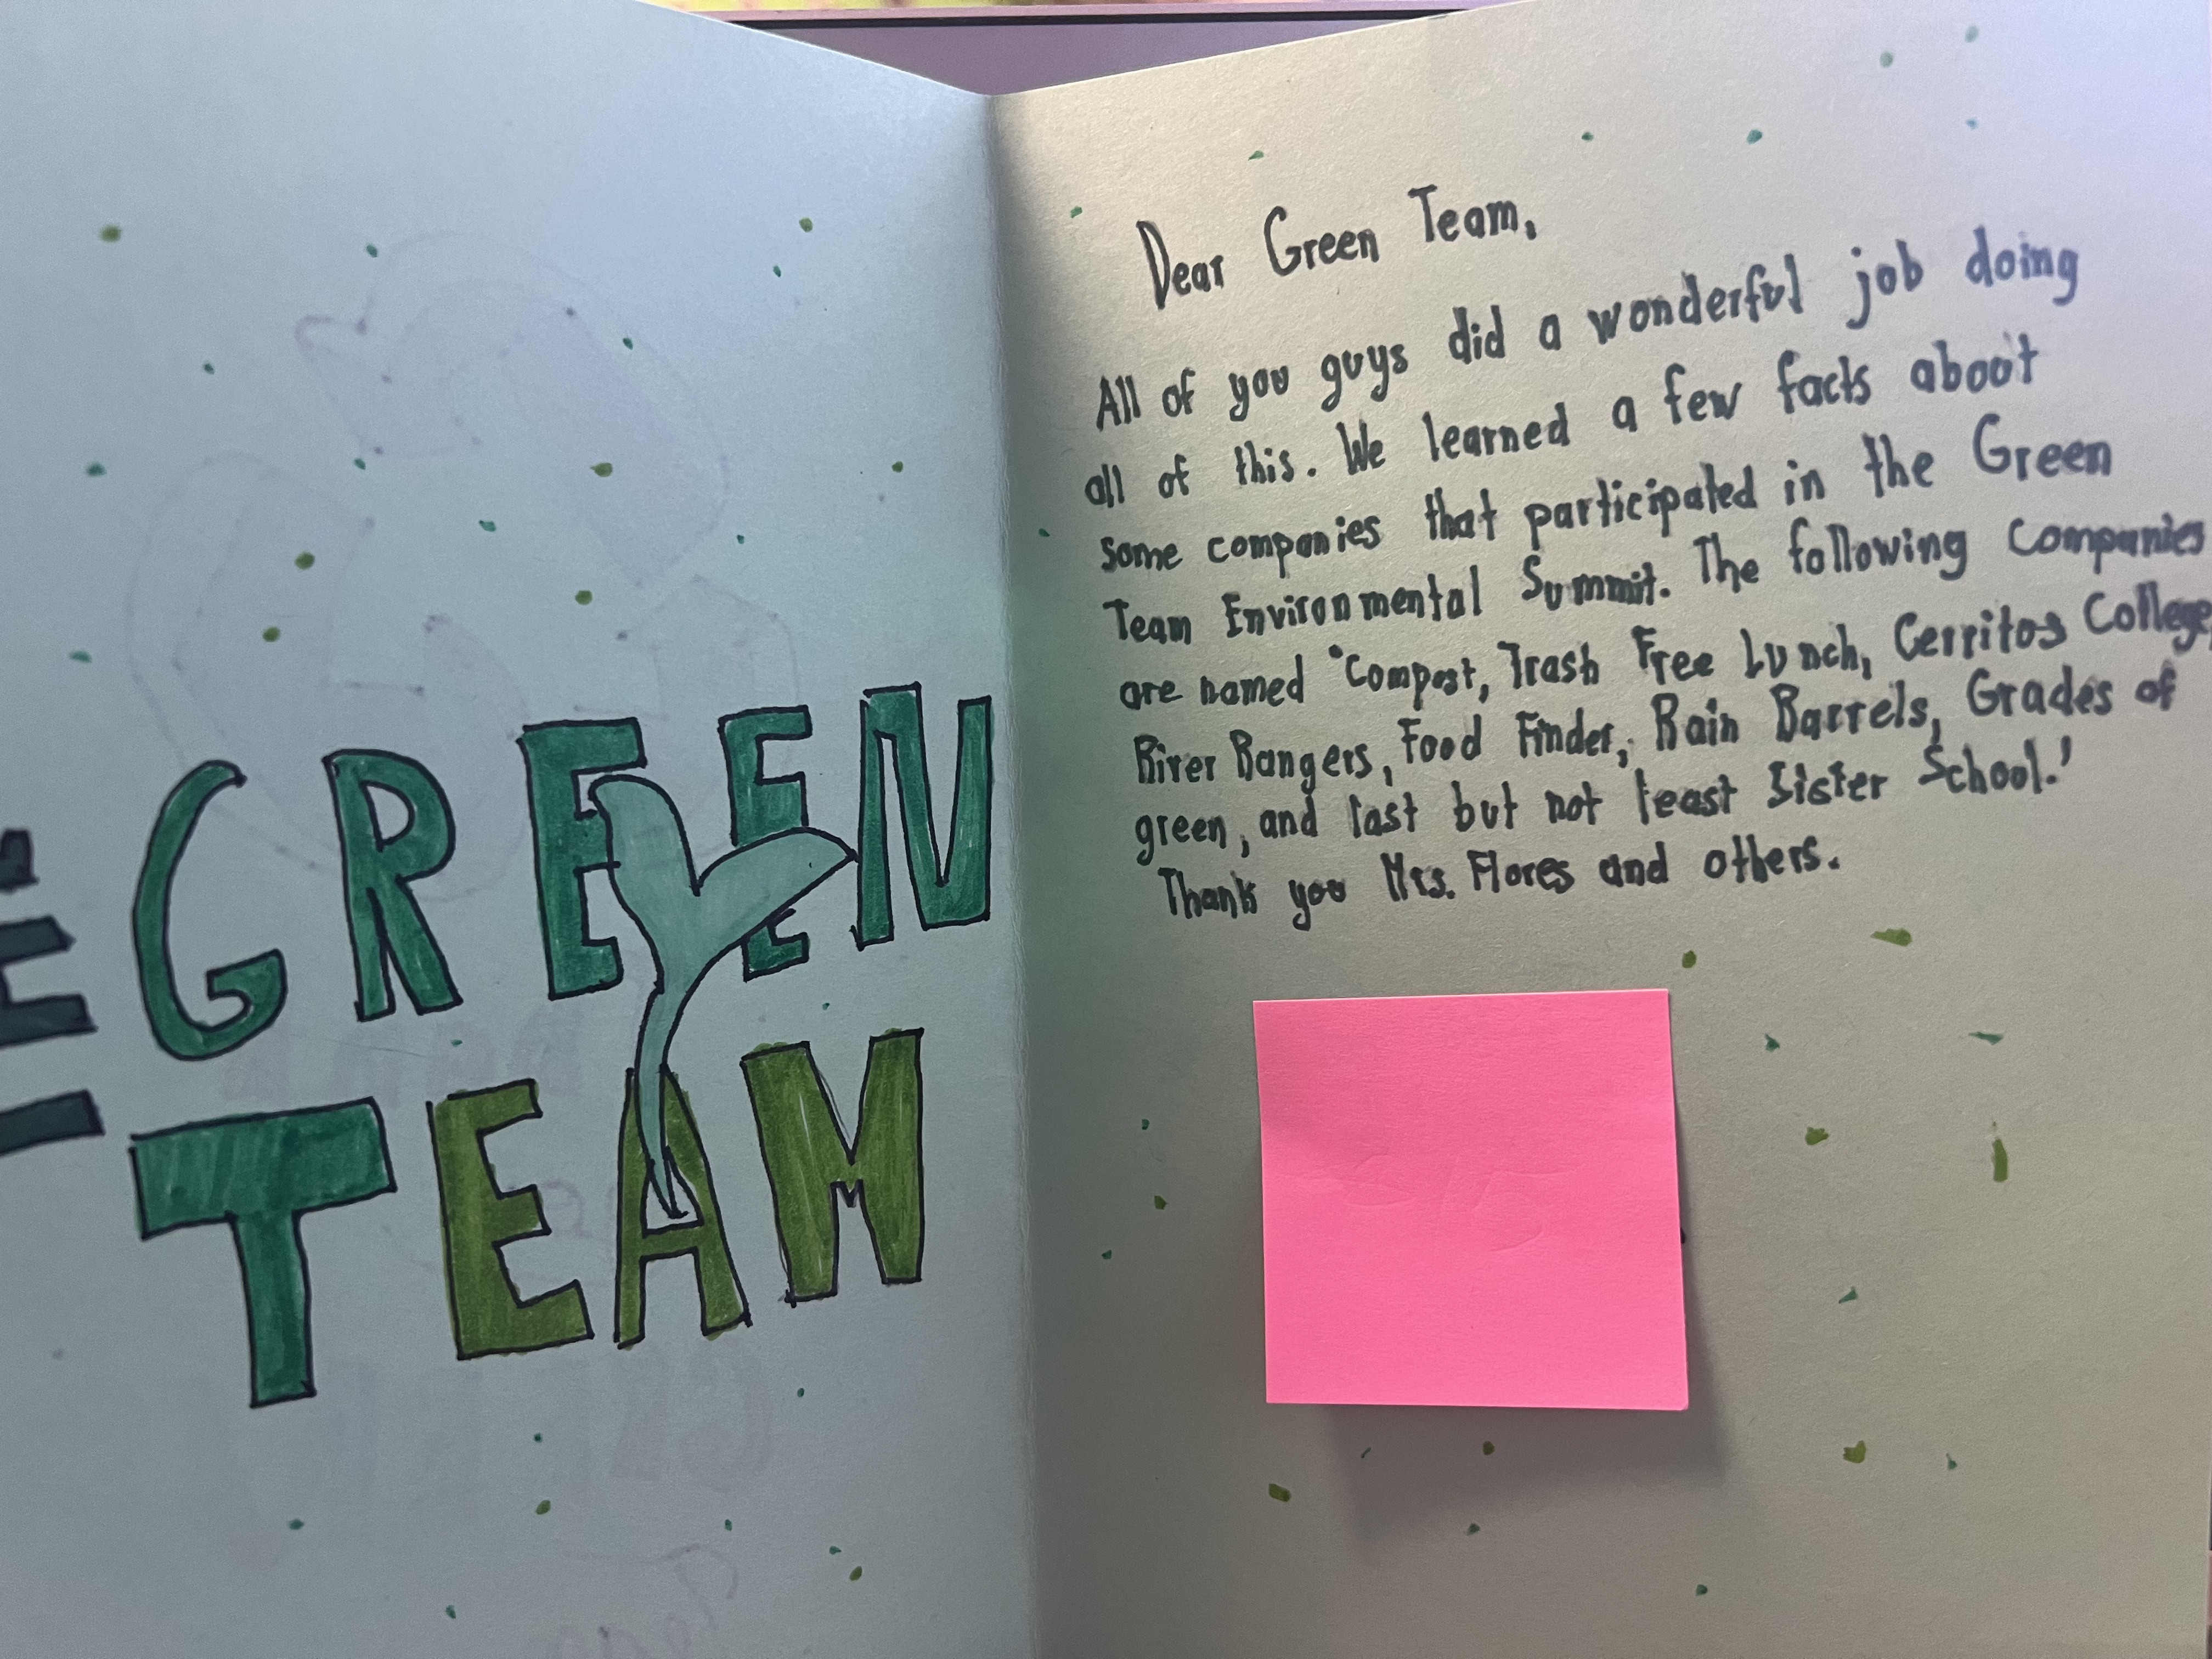 THE
GREEN
TEAM
Dear Green Team,
All of you guys did a wonderful job doing
all of this. We learned a few facts about
some companies that participated in the Green
Team Environmental Summit. The following companies
are named "Compost, Trash Free Lunch, Cerritos College,
River Rangers, Food Finder, Rain Barrels, Grades of
green, and last but not least Sister School.'
Thank you Mrs. Flores and others.